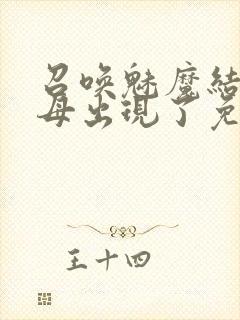 召唤魅魔结
母出现了免
王十四